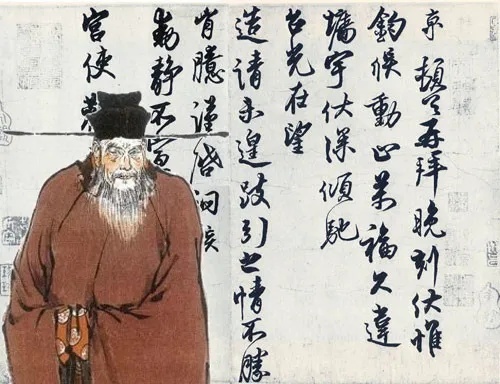 京頓首再拜晚刻伏惟
鈞候動止萬福久違
墻宇伏深傾馳
台光在望
造請未遑跂引之情不勝
胷臆謹啓問候
動靜不宣
宮使